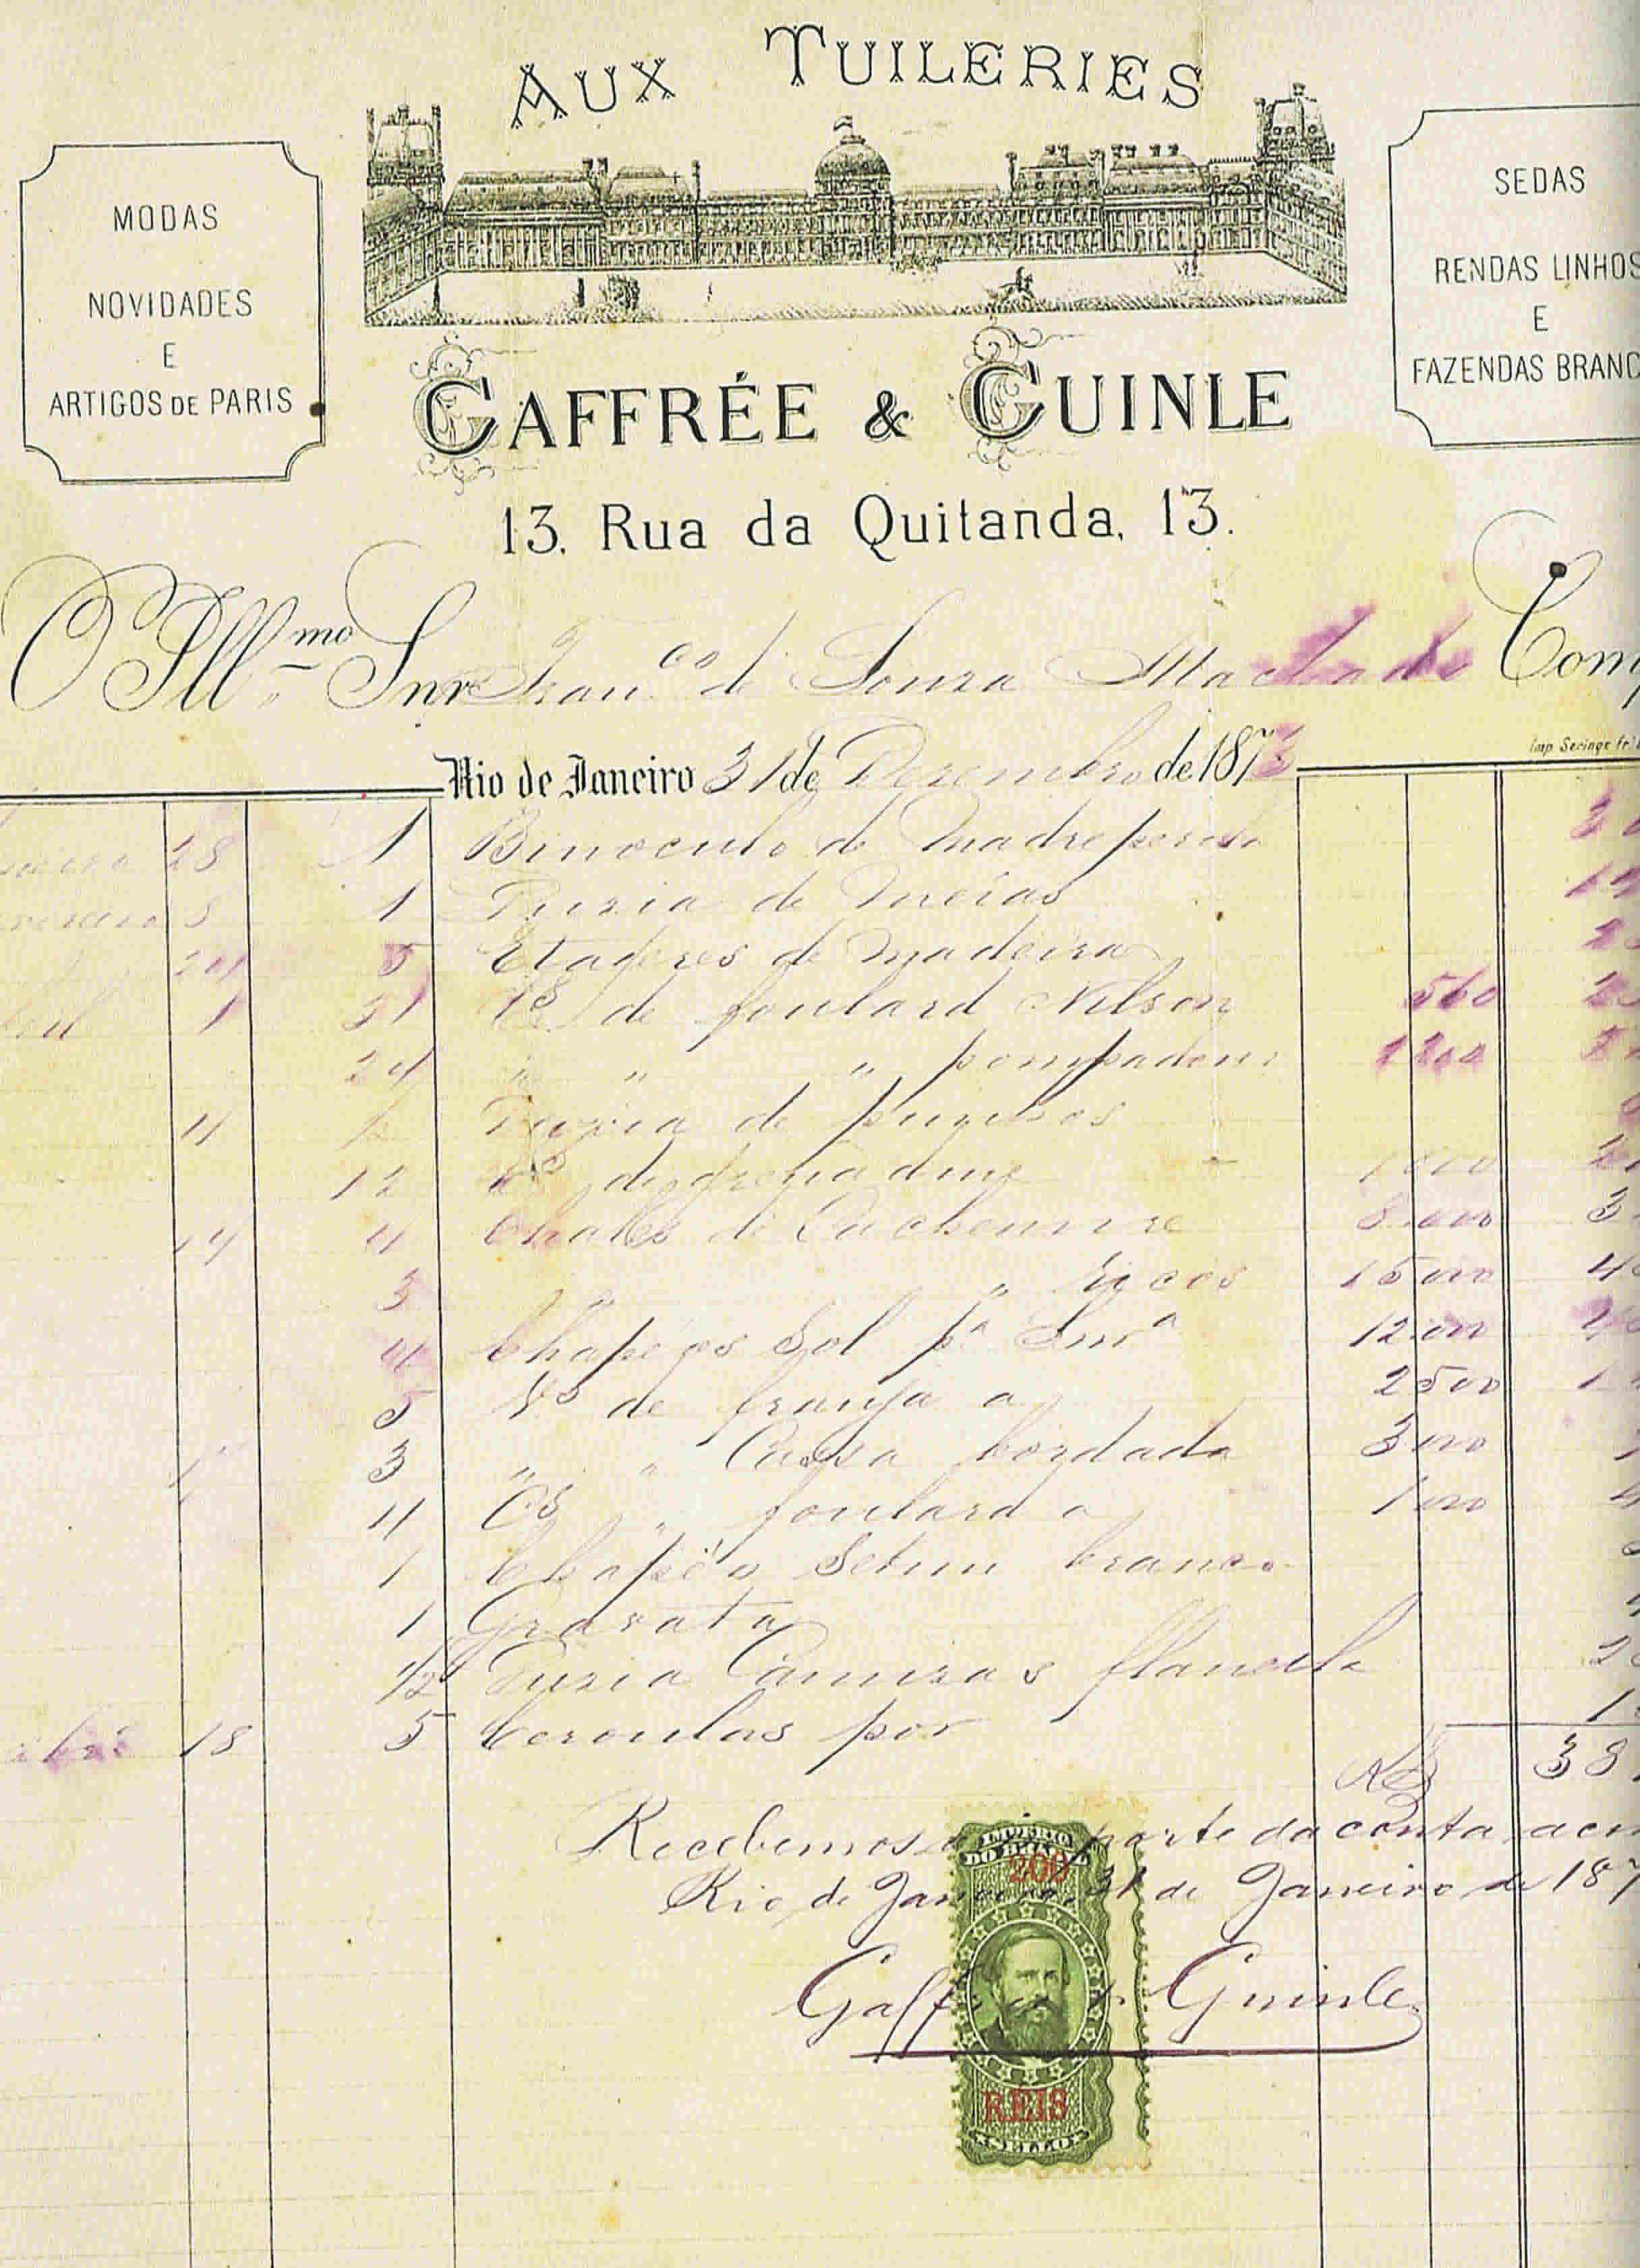 AUX TUILERIES
MODAS
NOVIDADES
E
ARTIGOS DE PARIS
SEDAS
RENDAS LINHOS
E
FAZENDAS BRANC
GAFFRÉE & GUINLE
13. Rua da Quitanda, 13.
O Illmo. Snr Franco de Souza Machado Com
Imp Seringe fr:
Rio de Janeiro 31 de Dezembro de 1873
28 1 Binoculo de Madreperola
8 1 Duzia de Meias
24 5 Etageres de Madeira
1 51 Cs de foulard Nilson 560
24 " " " pompadour 1200
4 ½ Duzia de punhos
12 de grenadine 1000
14 4 Chales de Cachemire 8000
3 " " ricos 15000
4 Chapéos Sol pa Snra 12000
5 Vs de franja a 2500
3 " " Cassa bordada 3000
4 Cs " foulard a 1000
1 Chapéo Setim branco
1 Gravata
1/2 Duzia Camizas flanella
18 5 Ceroulas por
RS 38
Recebemos a parte da conta acm
Rio de Janeiro 31 de Janeiro de 187
Gaffrée & Guinle
IMPERIO
DO BRASIL
200
REIS
SELLO